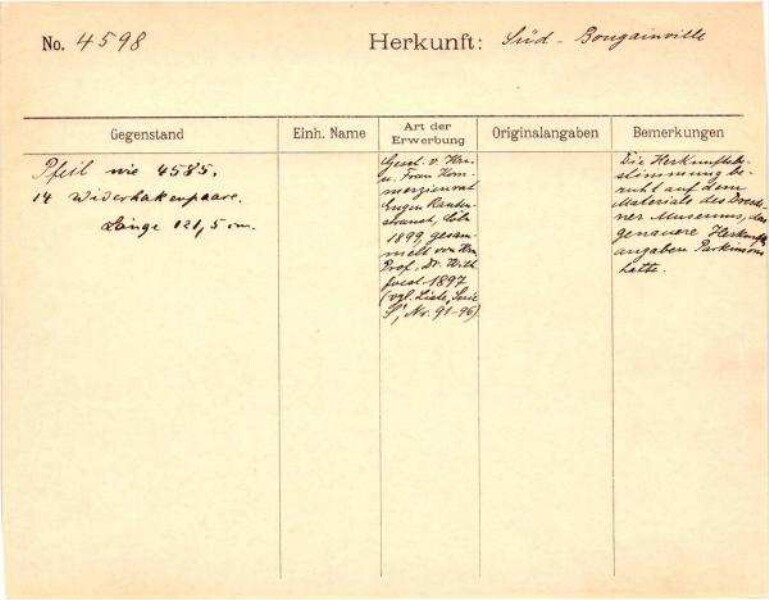 No. 4598
Herkunft: Süd - Bougainville
Gegenstand
Einh. Name
Art der
Erwerbung
Originalangaben
Bemerkungen
Pfeil wie 4585.
14 Widerhakenpaare.
Länge 121,5 cm.
Gesch. v. Hrn.
u. Frau Kom-
merzienrat
Eugen Rauten-
strauch, Cöln
1899, gesam-
melt von Hrn
Prof. Dr. Wilh.
Joest 1897
(vgl. Liste, Serie
S, Nr. 91-96)
Die Herkunftsbe-
stimmung be-
ruht auf dem
Materiale des Dresd-
ner Museums, das
genauere Herkunfts-
angaben Parkinsons
hatte.